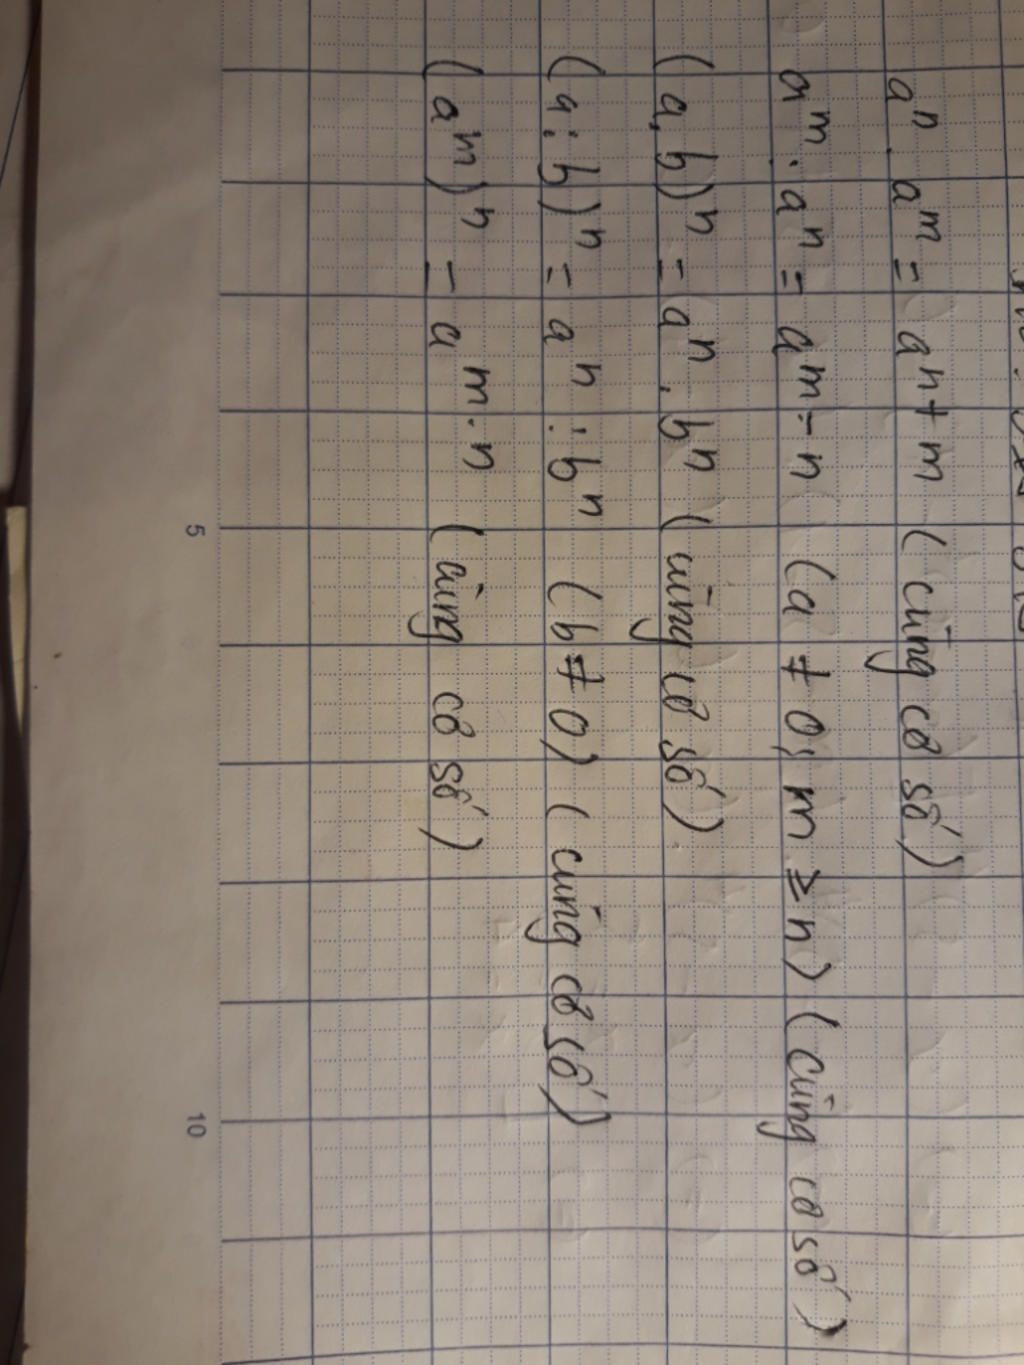 aⁿ . aᵐ = aⁿ⁺ᵐ (cùng cơ số)
aᵐ . aⁿ = aᵐ⁻ⁿ (a ≠ 0; m ≥ n) (cùng cơ số)
(a . b)ⁿ = aⁿ . bⁿ (cùng cơ số)
(a : b)ⁿ = aⁿ : bⁿ (b ≠ 0) (cùng cơ số)
(aᵐ)ⁿ = aᵐ·ⁿ (cùng cơ số)
5
10